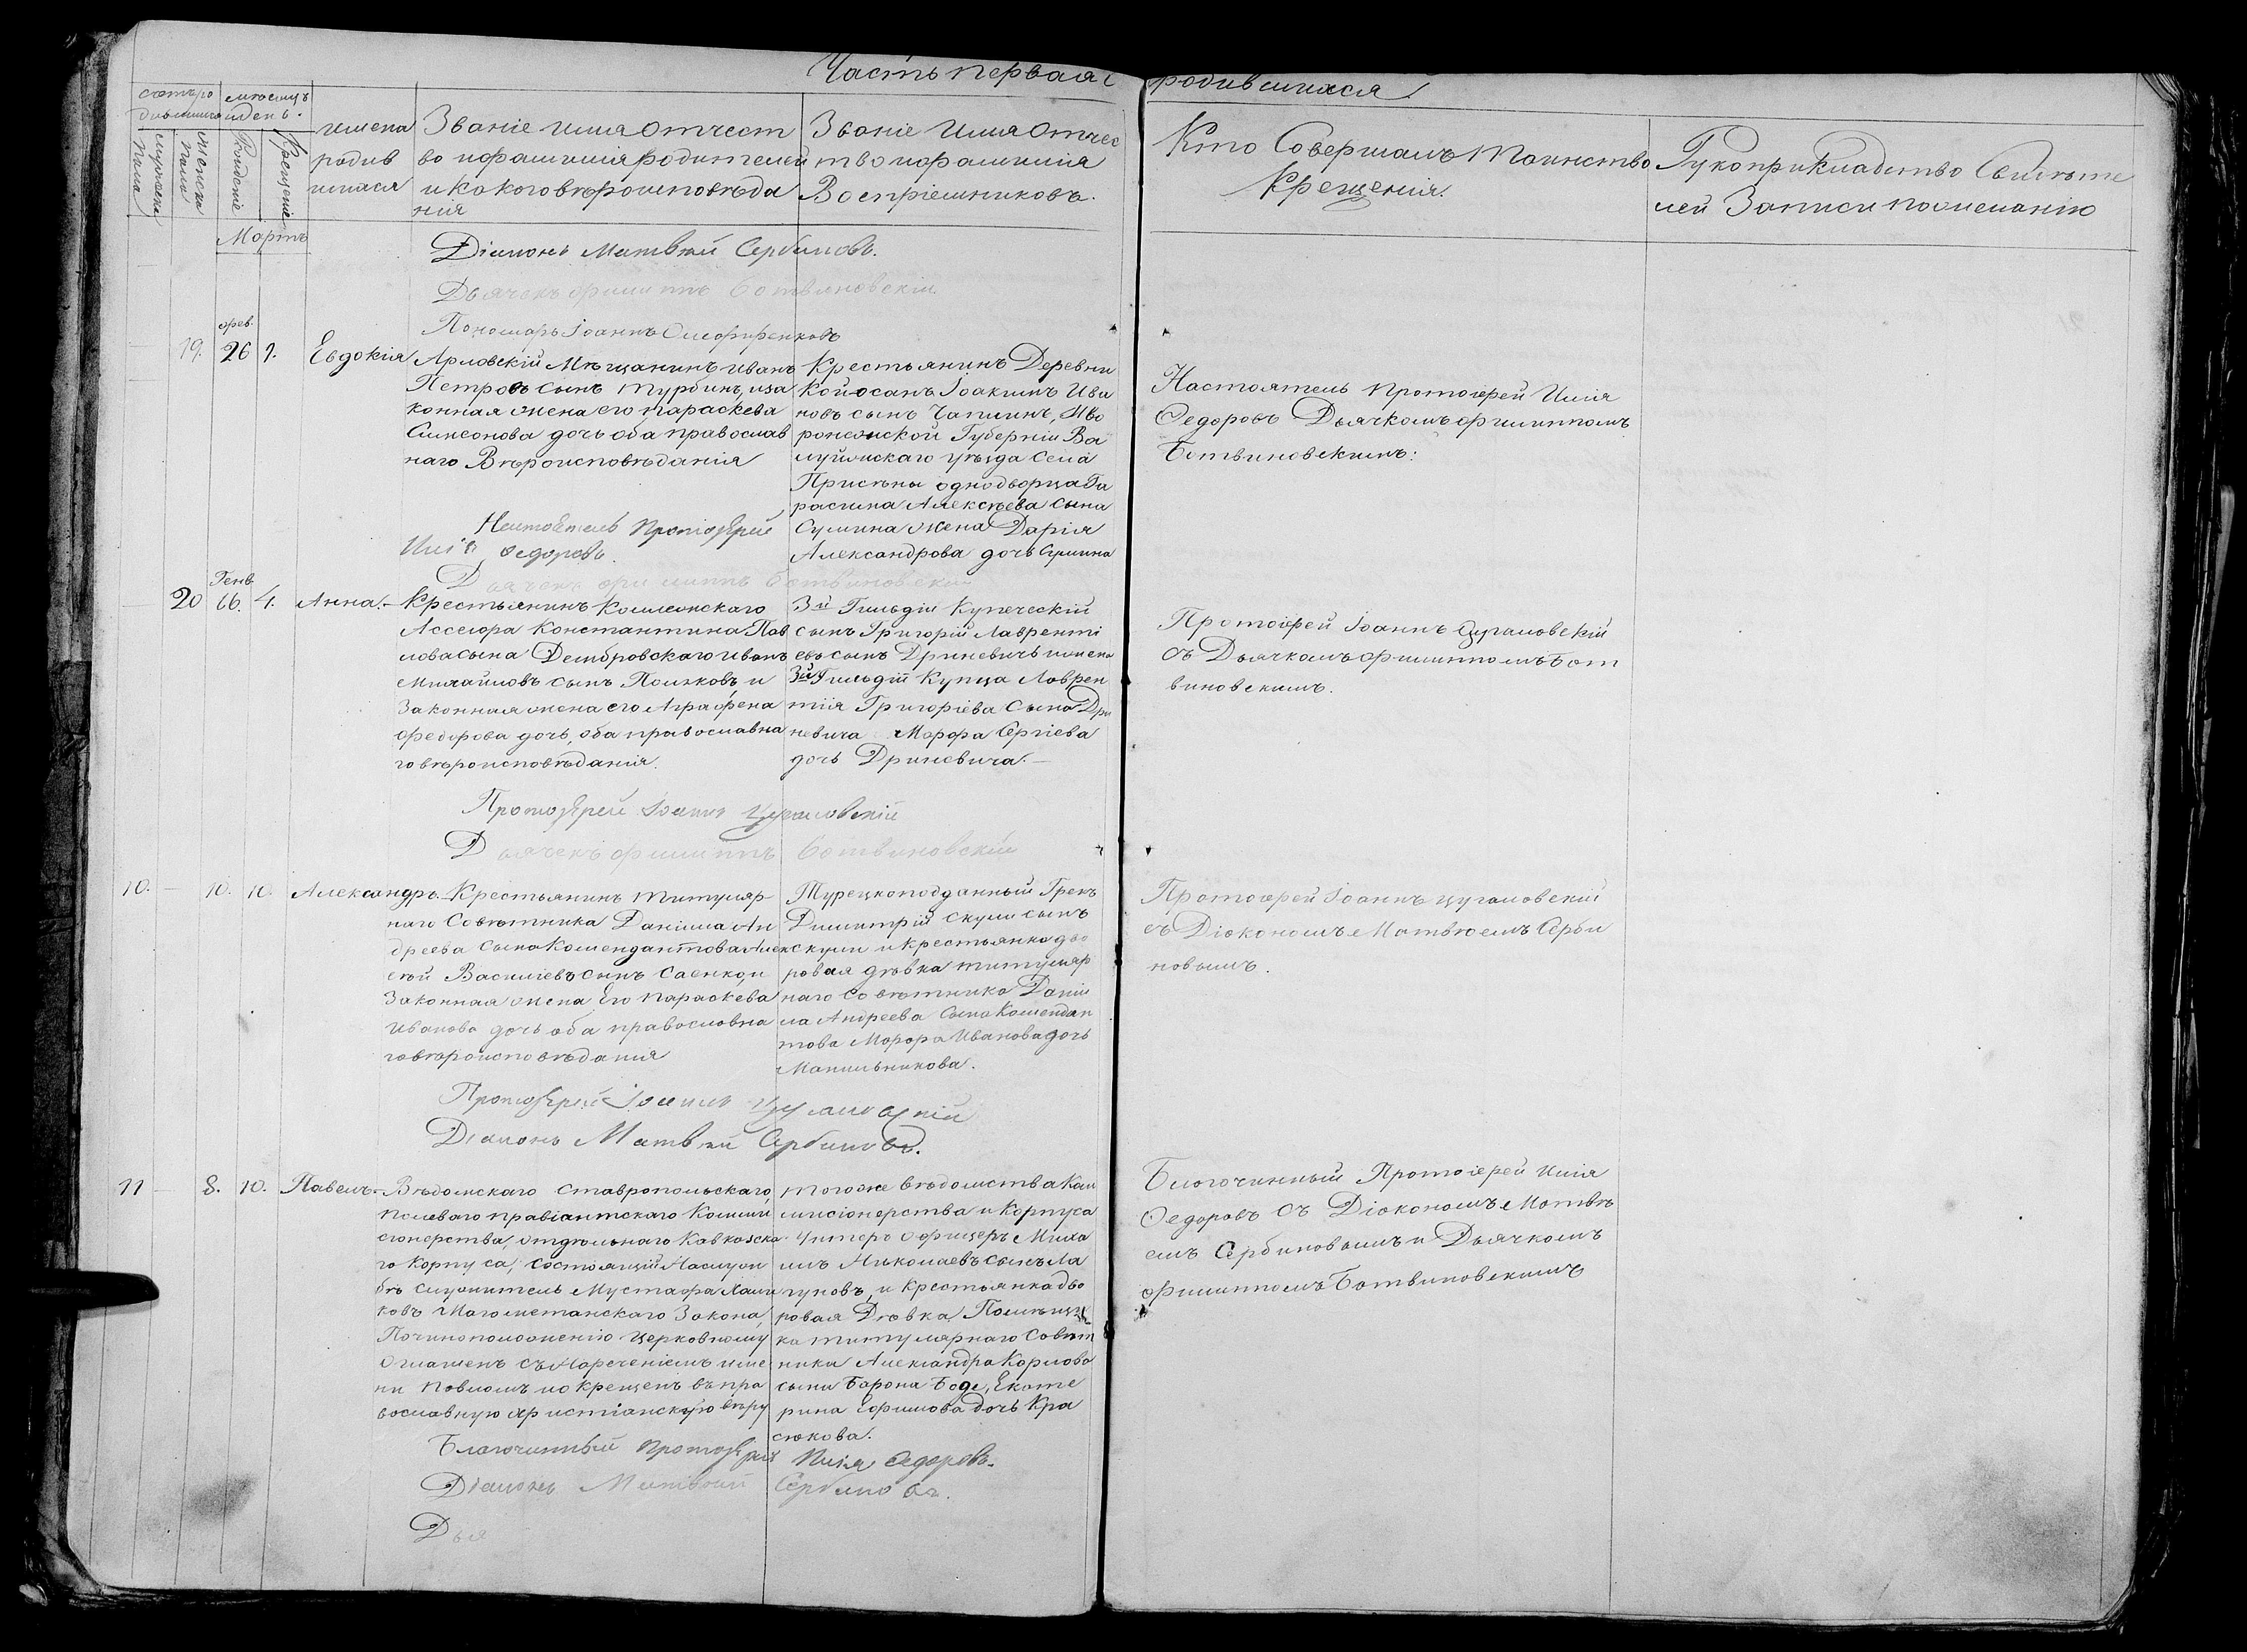 Часть первая о родившихся
счетъ ро
дившихся
мѣсяцъ
и день.
мужеска
пола
женска
пола
Рожденіе
Крещеніе
имена
родив
шихся
Званіе имя отчест
во и фамилія родителей
и какого вѣроисповѣда
нія
Званіе Имя Отчес
тво и фамилія
Воспріемниковъ.
Кто Совершалъ таинство
Крещенія.
Рукоприкладство Свидѣте
лей Записи по желанію
Мартъ
Діаконъ Матвѣй Сербиновъ.
Дьячекъ Филиппъ Ботвиновскій
Пономарь Іоаннъ
19.
фев.
26
1.
Евдокія
Арловскій Мѣщанинъ Иванъ
Петровъ сынъ Турбинъ, иза
конная жена его Параскева
Симеонова дочь оба православ
наго Вѣроисповѣданія
Крестьянинъ Деревни
Койосанъ Іоакимъ Ива
новъ сынъ Чаплинъ, и Во
ронежской Губерніи Ва
луйскаго уѣзда села
Присѣны однодворца Га
расима Алексѣева сына
Сумина жена Дарія
Александрова дочь Сумина
Настоятель Протоіерей Илія
Федоровъ Дьячкомъ Филиппомъ
Ботвиновскимъ:
Настоятель Протоіерей
Илія Федоровъ.
Дьячекъ Филиппъ Ботвиновскій
20
Генв.
16.
4.
Анна.
Крестьянинъ Коллежскаго
Ассесора Константина Пав
лова сына Дембровскаго Иванъ
Михайловъ сынъ Поляковъ, и
Законная жена его Аграфена
Федорова дочь, оба православна
го вѣроисповѣданія.
3й Гильдіи Купеческій
сынъ Григорій Лавренті
евъ сынъ Дриневичъ и жена
3й Гильдіи Купца Лаврен
тія Григоріева Сына Дри
невича Марфа Сергіева
дочь Дриневича.
Протоіерей Іоаннъ Цугаловскій
съ Дьячкомъ Филиппомъ Бот
виновскимъ.
Протоіерей Іоаннъ Цугаловскій
Дьячекъ Филиппъ Ботвиновскій
10.
10.
10.
Александръ
Крестьянинъ титуляр
наго Совѣтника Даніила Ан
дреева сына Комендантова Алек
сѣй Василіевъ сынъ Саенко, и
Законная жена Его Параскева
Иванова дочь оба православна
го вѣроисповѣданія
Турецкоподданный Грекъ
Димитрій Скули сынъ
Скули и крестьянка дво
ровая дѣвка титуляр
наго совѣтника Даніи
ла Андреева Сына Комендан
това Марфа Иванова дочь
Манильникова.
Протоіерей Іоаннъ Цугаловскій
съ Діакономъ Матвѣемъ Серби
новымъ.
Протоіерей Іоаннъ Цугаловскій
Діаконъ Матвѣй Сербиновъ.
11
8.
10.
Павелъ
Вѣдомскаго Ставропольскаго,
полеваго правіантскаго Коммиси
сіонерства, отдѣльнаго Кавказска
го Корпуса, состоящій
служитель Мустафа
ковъ Магометанскаго Закона,
Починоположенію церковному
Оглашенъ съ Нареченіемъ име
ни Павломъ и окрещенъ въ пра
вославную христіанскую вѣру
того же вѣдомства Ком
мисіонерства и Корпуса
Унтеръ Офицеръ Миха
илъ Николаевъ сынъ Ла
гуновъ, и крестьянка дво
ровая Дѣвка Помѣщи
ка титулярнаго Совѣт
ника Александра Карлова
сына Барона Боде, Екате
рина Ефимова дочь Кра
сюкова.
Благочинный Протоіерей Илія
Федоровъ Съ Діакономъ Матвѣ
емъ Сербиновымъ и Дьячкомъ
Филиппомъ Ботвиновскимъ
Благочинный Протоіерей Илія Федоровъ.
Діаконъ Матвѣй Сербиновъ.
Дья